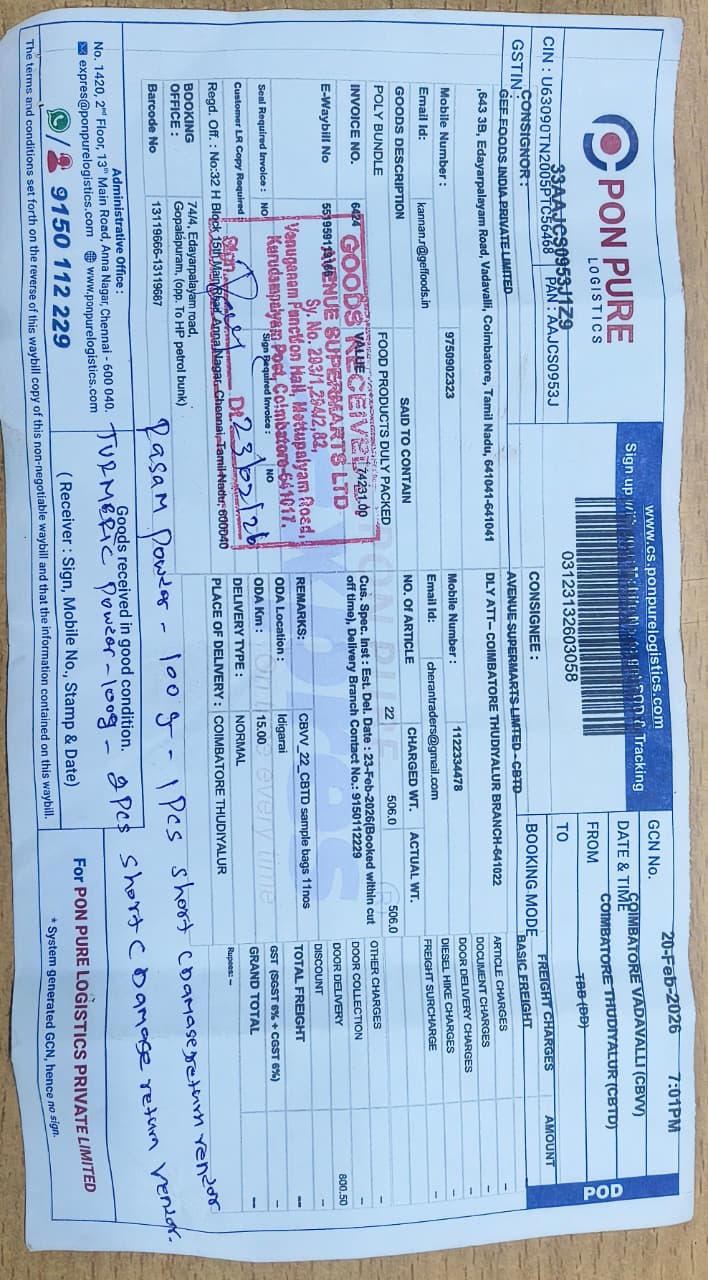 PON PURE
LOGISTICS
CIN : U63090TN2005PTC56468
PAN : AAJCS0953J
GSTIN :
33AAJCS0953J1Z9
www.cs.ponpurelogistics.com
Sign up
Tracking
03123132603058
GCN No.
DATE & TIME
20-Feb-2026 7:01PM
FROM
COIMBATORE VADAVALLI (CBVV)
TO
COIMBATORE THUDIYALUR (CBTD)
BOOKING MODE
TBB (DD)
POD
CONSIGNOR :
GEF FOODS INDIA PRIVATE LIMITED
,643 3B, Edayarpalayam Road, Vadavalli, Coimbatore, Tamil Nadu, 641041-641041
Mobile Number : 9750902323
Email Id: kannan.r@geffoods.in
CONSIGNEE :
AVENUE SUPERMARTS LIMTED - CBTD
DLY ATT- COIMBATORE THUDIYALUR BRANCH-641022
Mobile Number : 1122334478
Email Id: cherantraders@gmail.com
FREIGHT CHARGES AMOUNT
BASIC FREIGHT
ARTICLE CHARGES –
DOCUMENT CHARGES –
DOOR DELIVERY CHARGES –
DIESEL HIKE CHARGES –
FREIGHT SURCHARGE –
OTHER CHARGES
DOOR COLLECTION –
DOOR DELIVERY 800.50
DISCOUNT –
TOTAL FREIGHT --
GST (SGST 6% + CGST 6%) –
GRAND TOTAL --
Rupees: –
GOODS DESCRIPTION SAID TO CONTAIN NO. OF ARTICLE CHARGED WT. ACTUAL WT.
POLY BUNDLE FOOD PRODUCTS DULY PACKED 22 506.0 506.0
INVOICE NO. 6424 VALUE 74231.00
E-Waybill No
Cus. Spec. Inst : Est. Del. Date : 23-Feb-2026(Booked within cut
off time), Delivery Branch Contact No.: 9150112229
REMARKS: CBVV_22_CBTD sample bags 11nos
Seal Required Invoice : NO
Sign Required Invoice : NO
Customer LR Copy Required :
ODA Location : Idigarai
ODA Km : 15.00
Regd. Off. : No:32 H Block 15th Main Road, Anna Nagar, Chennai, Tamil Nadu, 600040
DELIVERY TYPE : NORMAL
BOOKING
OFFICE :
74/4, Edayarpalayam road,
Gopalapuram, (opp. To HP petrol bunk)
PLACE OF DELIVERY : COIMBATORE THUDIYALUR
Barcode No 13119666-13119687
GOODS RECEIVED
AVENUE SUPERMARTS LTD
Sy. No. 293/1,294/2,82,
Venuganam Function Hall, Mettupalyam Road,
Kurudampalyam Post, Coimbatore-641017.
Sign
Dt 23/02/26
Rasam Powder - 100g - 1Pcs short (Damase return vendor
TURMERIC Powder - 100g - 2Pcs short (Damase return vendor.
Administrative Office :
No. 1420, 2nd Floor, 13th Main Road, Anna Nagar, Chennai - 600 040.
expres@ponpurelogistics.com www.ponpurelogistics.com
9150 112 229
Goods received in good condition.
( Receiver : Sign, Mobile No., Stamp & Date)
For PON PURE LOGISTICS PRIVATE LIMITED
* System generated GCN, hence no sign.
The terms and conditions set forth on the reverse of this waybill copy of this non-negotiable waybill and that the information contained on this waybill.